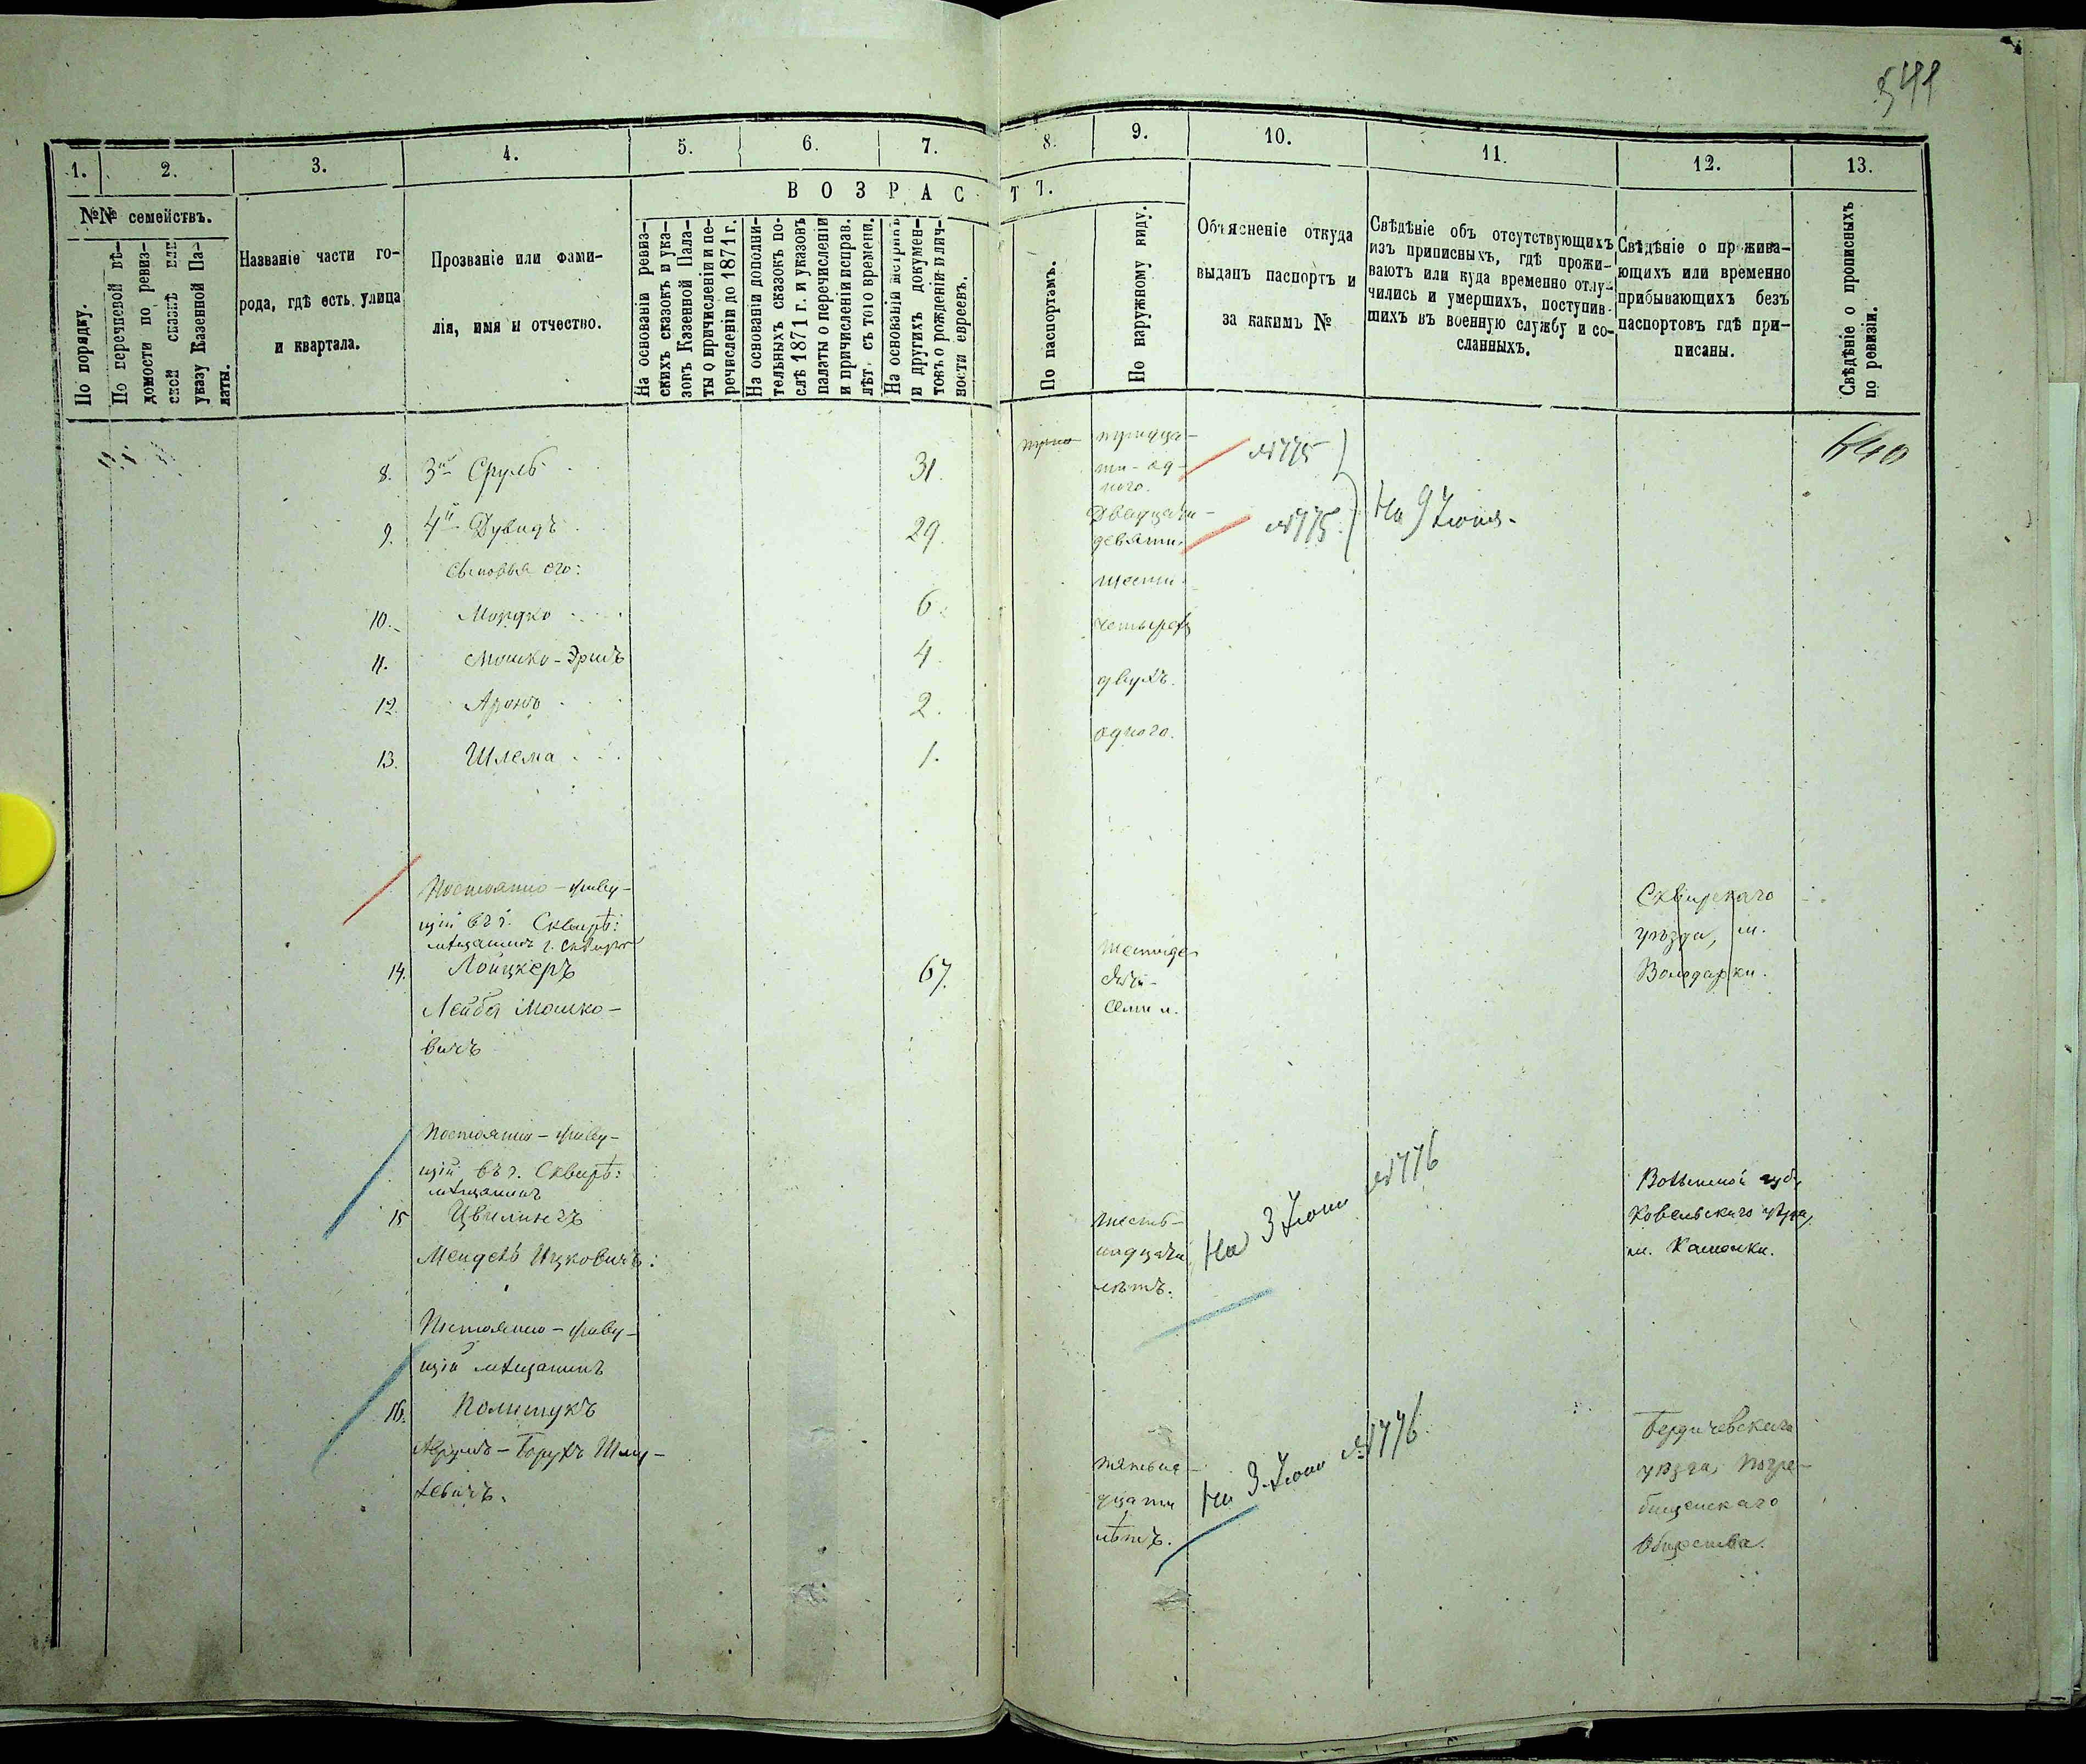 541
1. 2. 3. 4. 5. 6. 7. 8. 9. 10. 11. 12. 13.
ВОЗРАСТЪ.
№№ семействъ.
По порядку.
По перечневой вѣ-
домости по ревиз-
ской сказкѣ или
указу Казенной Па-
латы.
Названіе части го-
рода, гдѣ есть улица
и квартала.
Прозваніе или фами-
лія, имя и отчество.
На основаніи ревиз-
скихъ сказокъ и ука-
зовъ Казенной Пала-
ты о причисленіи и пе-
речисленіи до 1871 г.
На основаніи дополни-
тельныхъ сказокъ по-
слѣ 1871 г. и указовъ
палаты о перечисленіи
и причисленіи исправ.
лѣт. съ того времени.
На основаніи метрикъ
и другихъ докумен-
товъ о рожденіи и лич-
ности евреевъ.
По паспортамъ.
По наружному виду.
Объясненіе откуда
выданъ паспортъ и
за какимъ №
Свѣдѣніе объ отсутствующихъ
изъ приписныхъ, гдѣ прожи-
ваютъ или куда временно отлу-
чились и умершихъ, поступив-
шихъ въ военную службу и со-
сланныхъ.
Свѣдѣніе о прожива-
ющихъ или временно
прибывающихъ безъ
паспортовъ гдѣ при-
писаны.
Свѣдѣніе о прописныхъ
по ревизіи.
8. 3й Сруль 31. тридца-
ти-од-
ного. №775
9. 4й Дувидъ 29. Двадцати-
девяти. №775 На 9 Іюня.
Сыновья его:
10. Мордко 6. шести
11. Мошко-Эршъ 4. четырехъ
12. Аронъ 2. двухъ.
13. Шлема 1. одного.
Постоянно-живу-
щій въ г. Сквирѣ:
мѣщанинъ г. Сквиры
14. Лойцкеръ 67.
Лейба Мошко-
вичъ
шестиде-
сяти-
семи л.
Сквирскаго
уѣзда, м.
Володарки.
Постоянно-живу-
щій въ г. Сквирѣ:
мѣщанинъ
15 Цвилингъ
Мендель Ицковичъ:
шест-
надцати
лѣтъ.
На 3 Іюня №776
Волынской губ.
Ковельскаго уѣзда,
м.
Постоянно-живу-
щій мѣщанинъ
16. Полищукъ
Аврумъ-Борухъ Шму-
левичъ.
пятьна-
дцати
лѣтъ.
На 3 Іюня №776
Бердичевскаго
уѣзда, Погре-
бищенскаго
Общества.